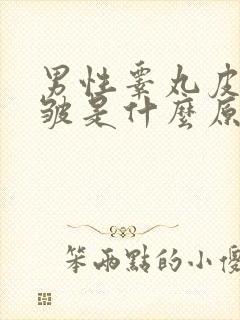 男性睪丸皮
皱是什麼原
笨兩點的小傻